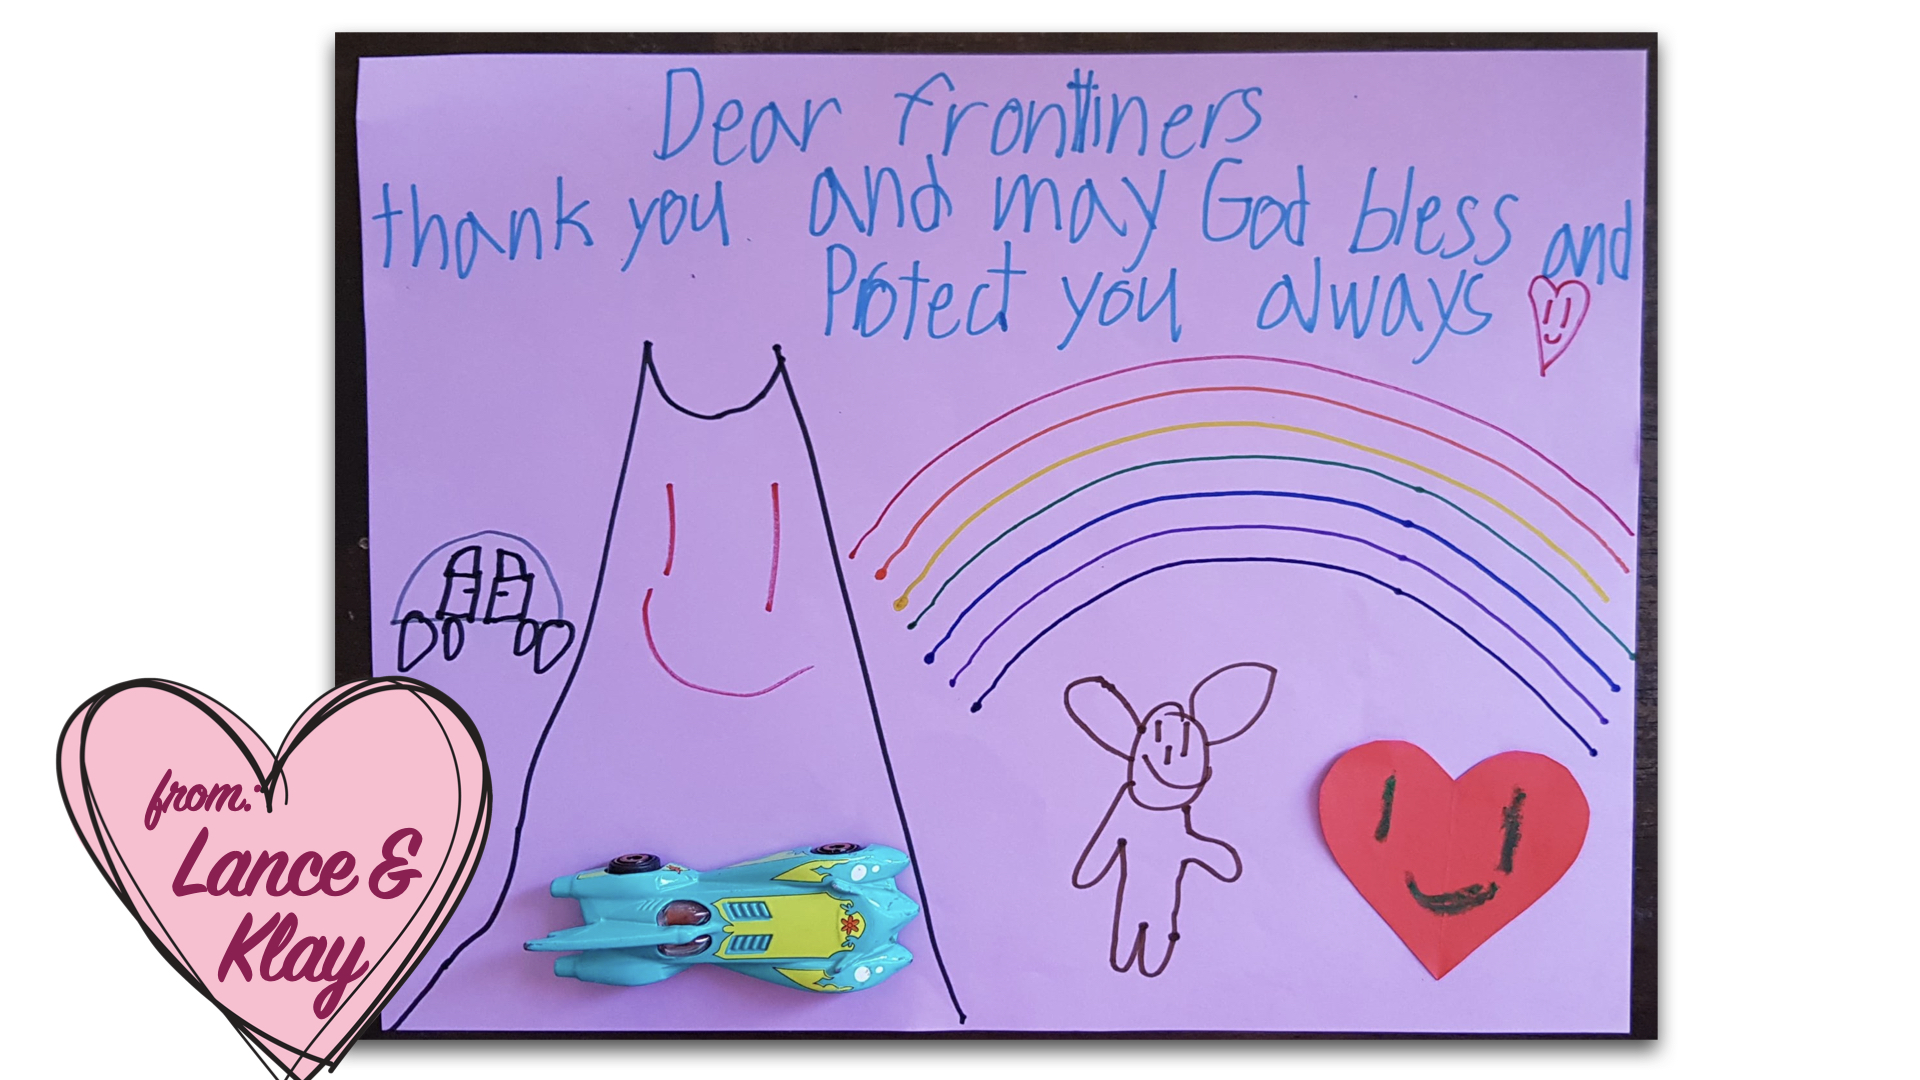 Dear frontliners
thank you and may God bless and
Protect you always
from:
Lance &
Klay